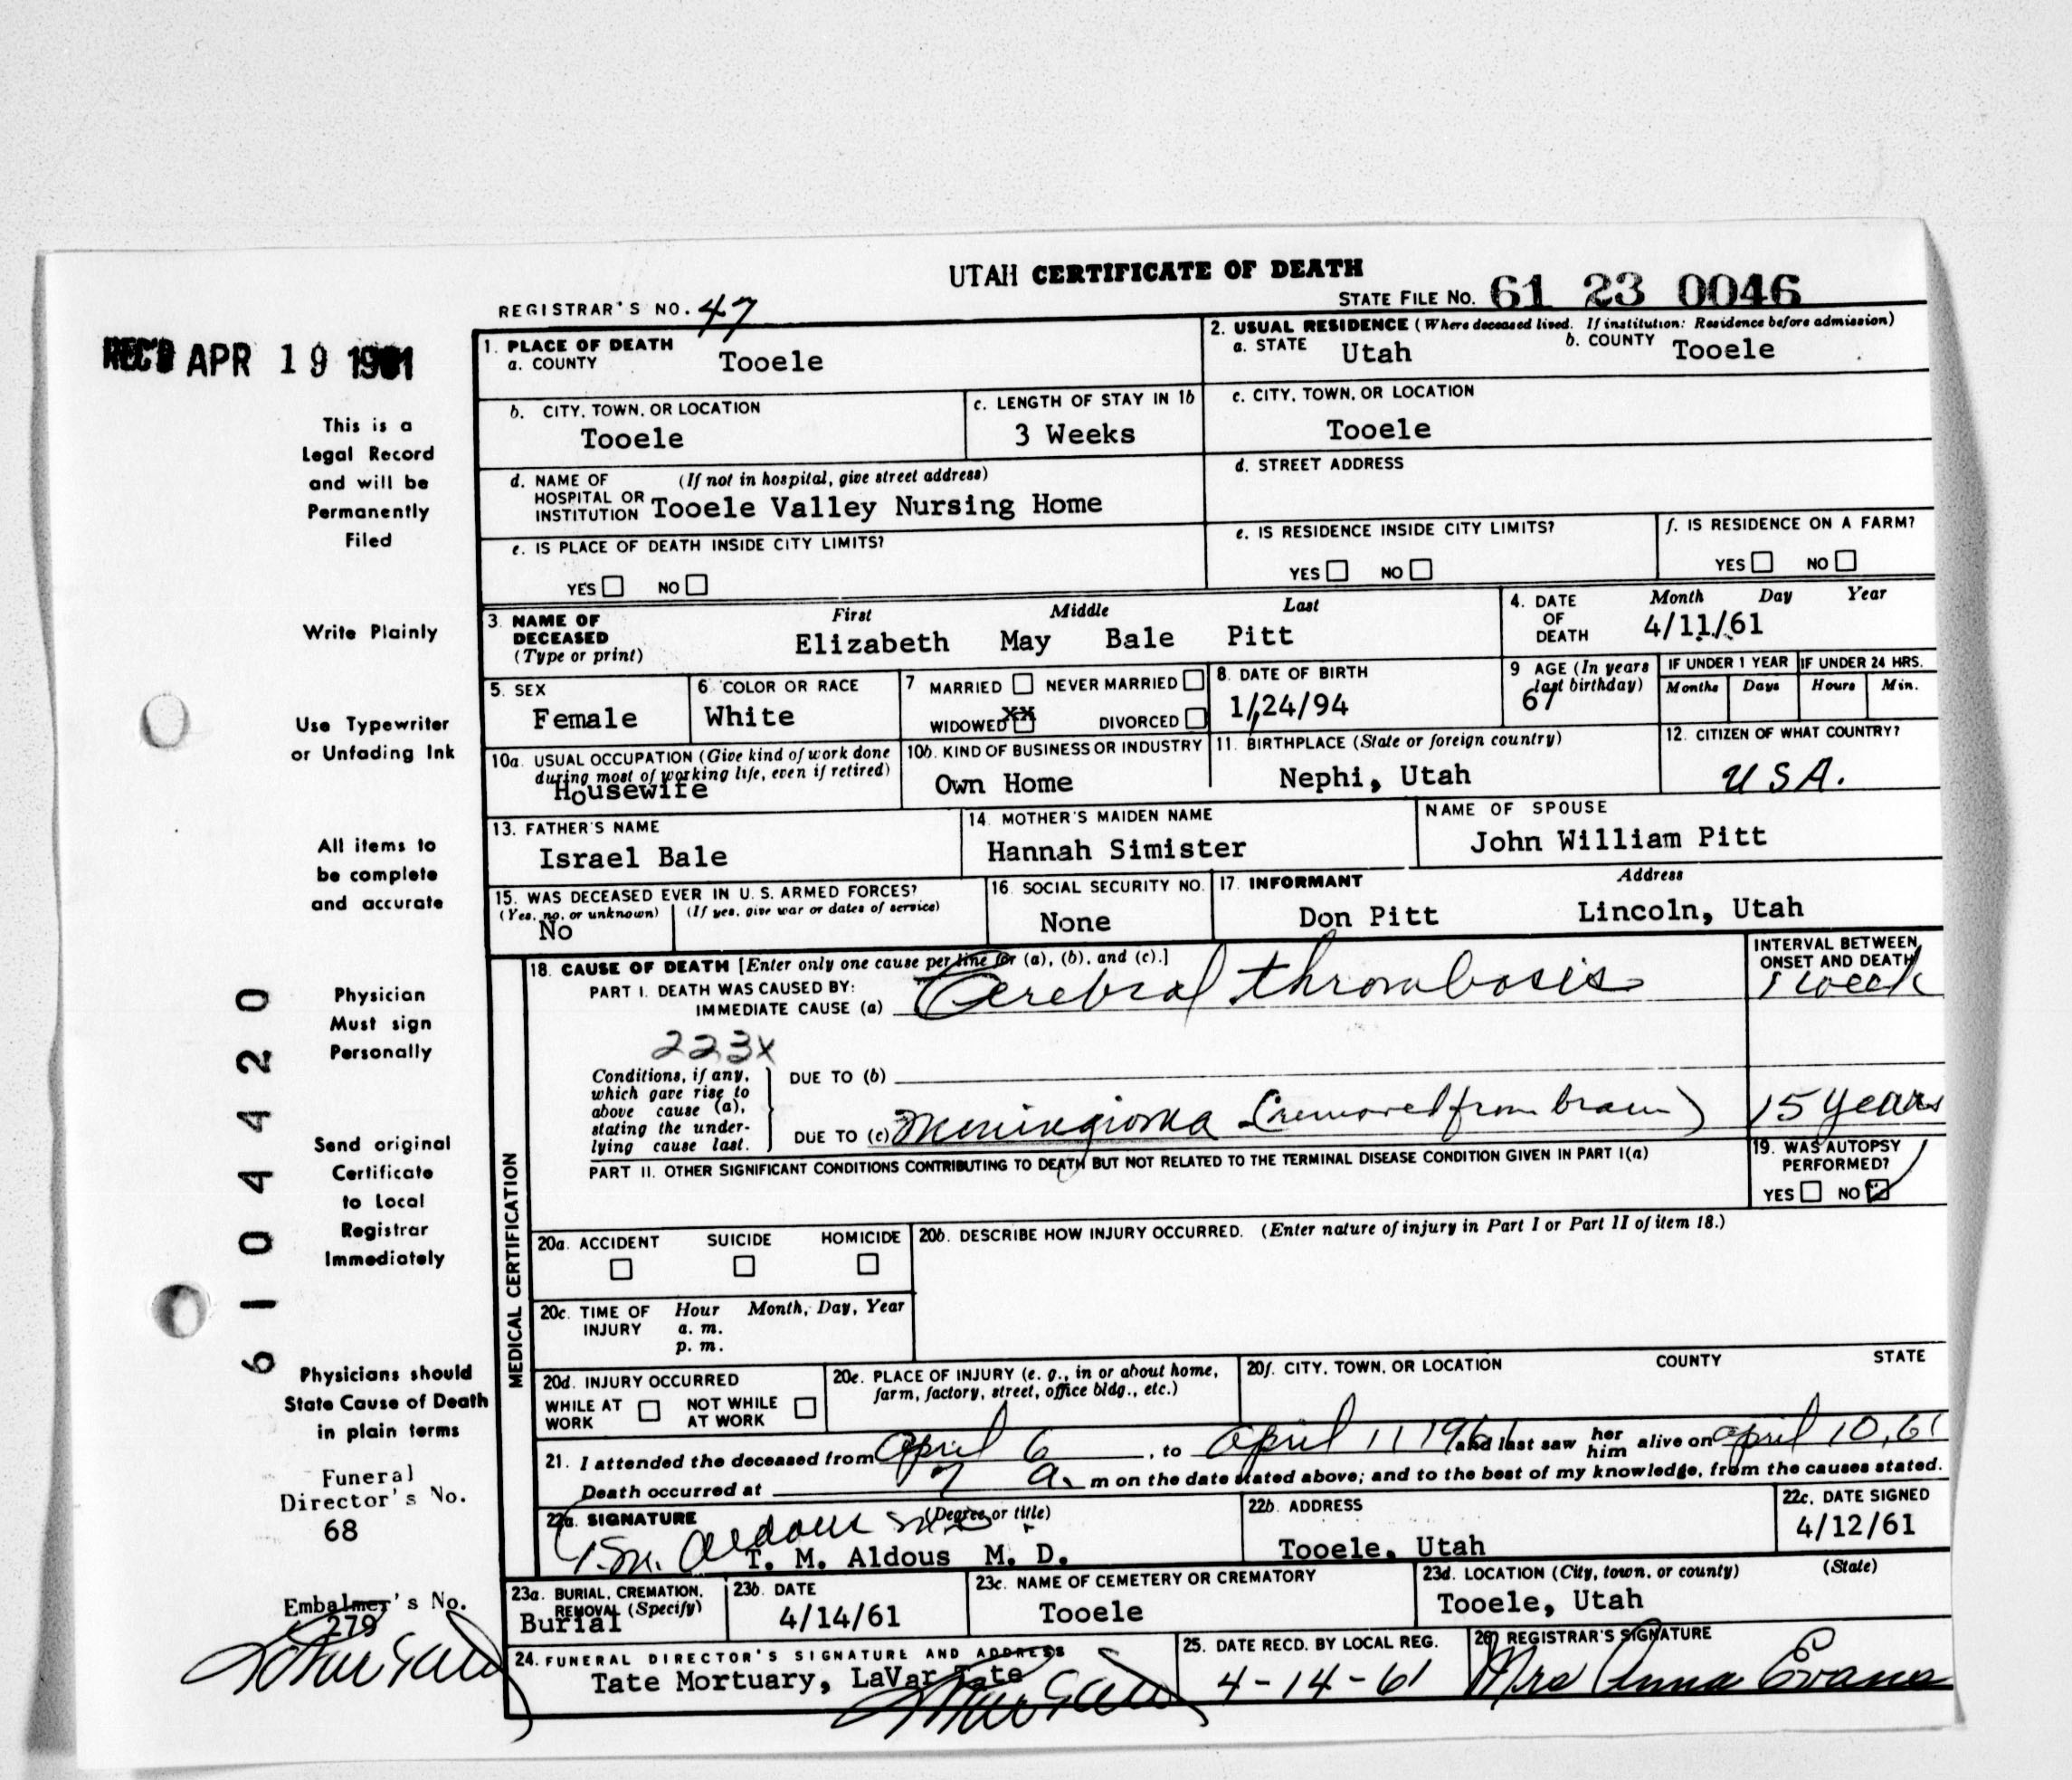 UTAH CERTIFICATE OF DEATH
REGISTRAR'S NO. 47
STATE FILE NO. 61 23 0046
REC'D APR 19 1961
This is a
Legal Record
and will be
Permanently
Filed
Write Plainly
Use Typewriter
or Unfading Ink
All items to
be complete
and accurate
Physician
Must sign
Personally
Send original
Certificate
to Local
Registrar
Immediately
Physicians should
State Cause of Death
in plain terms
Funeral
Director's No.
68
Embalmer's No.
279
6104420
1. PLACE OF DEATH
a. COUNTY Tooele
2. USUAL RESIDENCE (Where deceased lived. If institution: Residence before admission)
a. STATE Utah b. COUNTY Tooele
b. CITY, TOWN, OR LOCATION
Tooele
c. LENGTH OF STAY IN 1b
3 Weeks
c. CITY, TOWN, OR LOCATION
Tooele
d. NAME OF HOSPITAL OR INSTITUTION (If not in hospital, give street address)
Tooele Valley Nursing Home
d. STREET ADDRESS
e. IS PLACE OF DEATH INSIDE CITY LIMITS?
YES NO
e. IS RESIDENCE INSIDE CITY LIMITS?
YES NO
f. IS RESIDENCE ON A FARM?
YES NO
3. NAME OF DECEASED (Type or print)
First Middle Last
Elizabeth May Bale Pitt
4. DATE OF DEATH
Month Day Year
4/11/61
5. SEX
Female
6. COLOR OR RACE
White
7 MARRIED NEVER MARRIED
WIDOWED XX DIVORCED
8. DATE OF BIRTH
1/24/94
9 AGE (In years last birthday)
67
IF UNDER 1 YEAR IF UNDER 24 HRS.
Months Days Hours Min.
10a. USUAL OCCUPATION (Give kind of work done during most of working life, even if retired)
Housewife
10b. KIND OF BUSINESS OR INDUSTRY
Own Home
11. BIRTHPLACE (State or foreign country)
Nephi, Utah
12. CITIZEN OF WHAT COUNTRY?
USA.
13. FATHER'S NAME
Israel Bale
14. MOTHER'S MAIDEN NAME
Hannah Simister
NAME OF SPOUSE
John William Pitt
15. WAS DECEASED EVER IN U. S. ARMED FORCES?
(Yes, no, or unknown) (If yes, give war or dates of service)
No
16. SOCIAL SECURITY NO.
None
17. INFORMANT Address
Don Pitt Lincoln, Utah
MEDICAL CERTIFICATION
18. CAUSE OF DEATH [Enter only one cause per line for (a), (b), and (c).]
INTERVAL BETWEEN ONSET AND DEATH
PART I. DEATH WAS CAUSED BY:
IMMEDIATE CAUSE (a) Cerebral thrombosis 1 week
223X
Conditions, if any, which gave rise to above cause (a), stating the underlying cause last.
DUE TO (b)
DUE TO (c) Meningioma (removed from brain) 15 years
PART II. OTHER SIGNIFICANT CONDITIONS CONTRIBUTING TO DEATH BUT NOT RELATED TO THE TERMINAL DISEASE CONDITION GIVEN IN PART I(a)
19. WAS AUTOPSY PERFORMED?
YES NO
20a. ACCIDENT SUICIDE HOMICIDE
20b. DESCRIBE HOW INJURY OCCURRED. (Enter nature of injury in Part I or Part II of item 18.)
20c. TIME OF INJURY Hour Month, Day, Year
a. m.
p. m.
20d. INJURY OCCURRED
WHILE AT WORK NOT WHILE AT WORK
20e. PLACE OF INJURY (e. g., in or about home, farm, factory, street, office bldg., etc.)
20f. CITY, TOWN, OR LOCATION COUNTY STATE
21. I attended the deceased from April 6, to April 11 1961 and last saw her him alive on April 10, 61
Death occurred at 7 a. m on the date stated above; and to the best of my knowledge, from the causes stated.
22a. SIGNATURE (Degree or title)
T.M. Aldous M.D.
T. M. Aldous M. D.
22b. ADDRESS
Tooele, Utah
22c. DATE SIGNED
4/12/61
23a. BURIAL, CREMATION, REMOVAL (Specify)
Burial
23b. DATE
4/14/61
23c. NAME OF CEMETERY OR CREMATORY
Tooele
23d. LOCATION (City, town, or county) (State)
Tooele, Utah
24. FUNERAL DIRECTOR'S SIGNATURE AND ADDRESS
Tate Mortuary, LaVar Tate
25. DATE RECD. BY LOCAL REG.
4-14-61
26 REGISTRAR'S SIGNATURE
Mrs Anna Evans